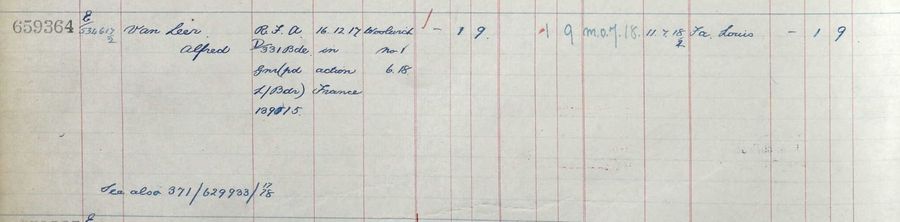 659364 E 534617/2 Van Leer R. F. A. 16.12.17 Woolwich - 1 9. 1 9 M.O.7.18. 11.7.18 Fa. Louis - 1 9
Alfred D 331 Bde in No 1
Gnr (pd action 6.18
L/Bdr) France
139515
See also 371/629933/17/18